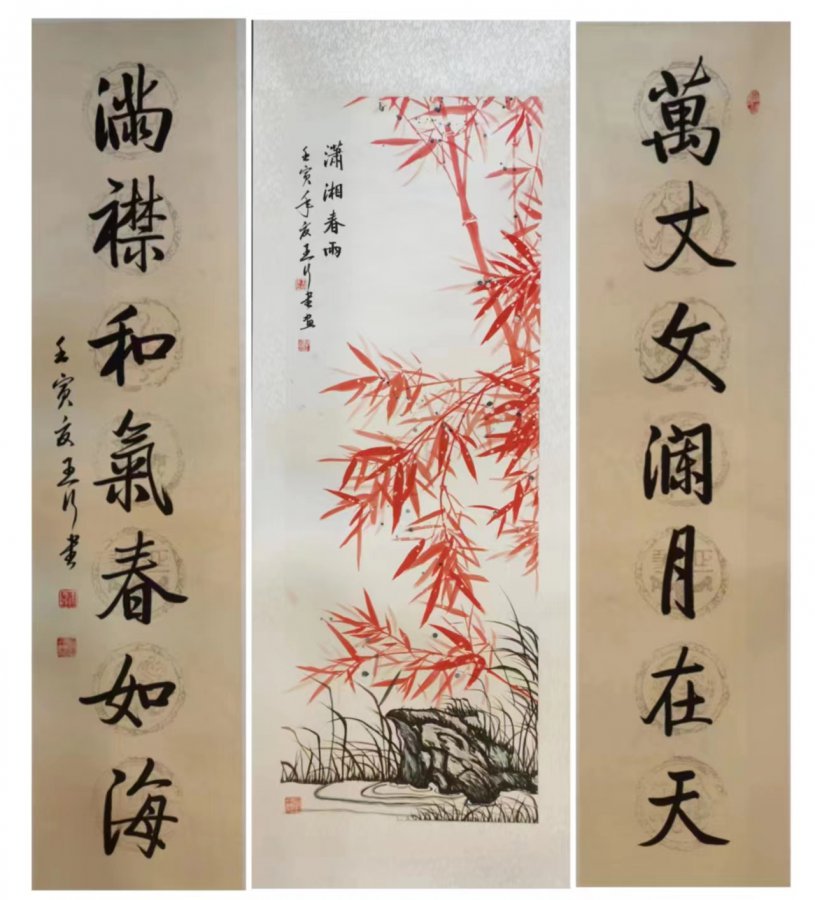 萬丈文瀾月在天
瀟湘春雨
壬寅年夏王行書畫
滿襟和氣春如海
壬寅夏王行書